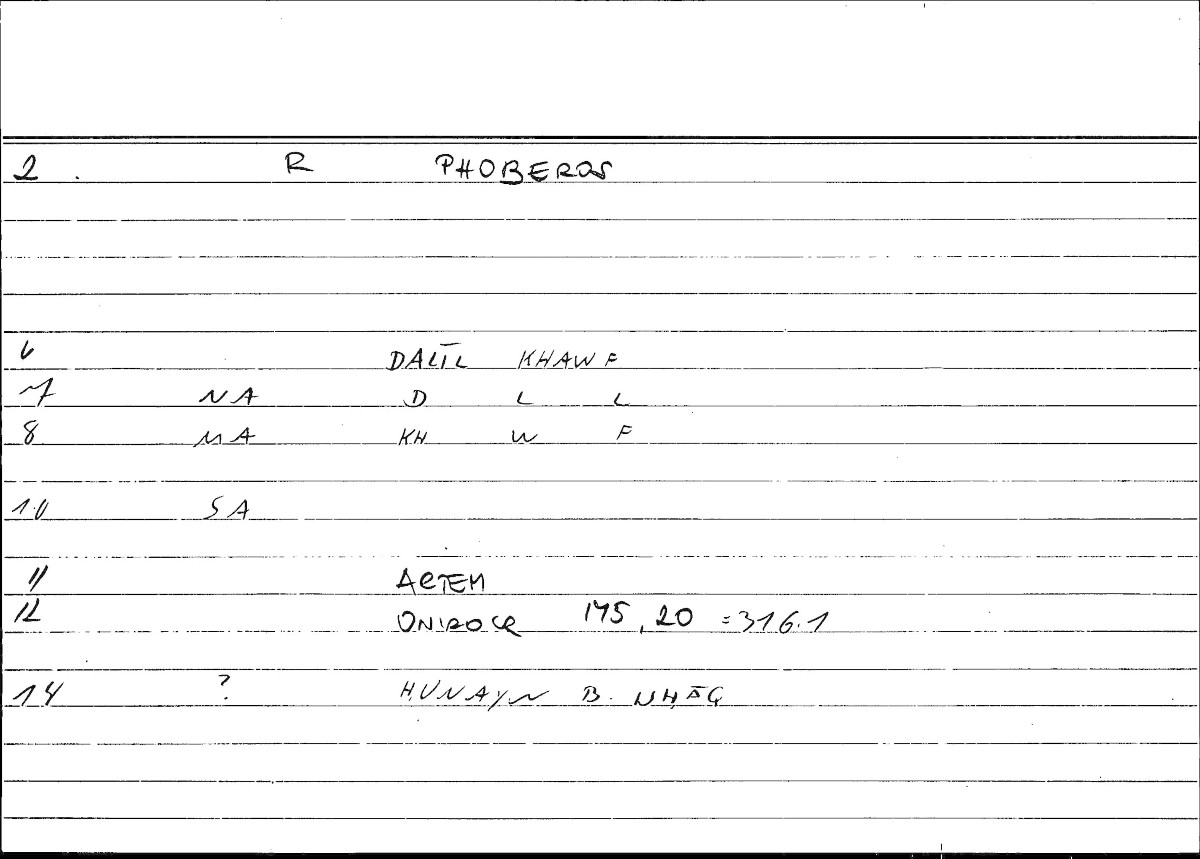 2 . R PHOBEROS
6 DALĪL KHAWF
7 NA D L L
8 MA KH W F
10 SA
11 ARTEM
12 ONIROCR 175,20 =316.1
14 ? ḤUNAYN B.